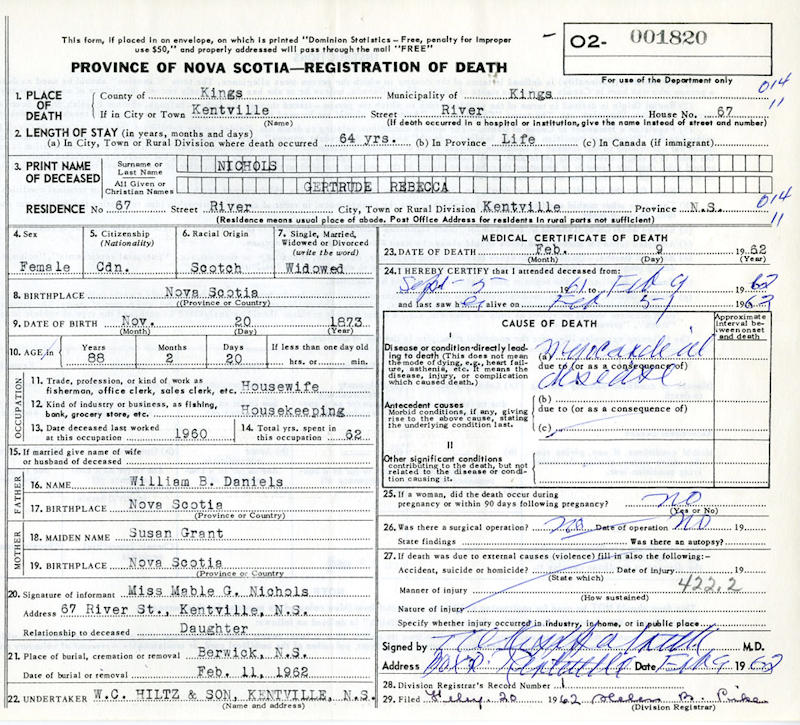 This form, if placed in an envelope, on which is printed "Dominion Statistics—Free, penalty for improper
use $50," and properly addressed will pass through the mail "FREE"
O2- 001820
PROVINCE OF NOVA SCOTIA—REGISTRATION OF DEATH
For use of the Department only
1. PLACE OF DEATH County of Kings Municipality of Kings 014
If in City or Town Kentville Street River House No. 67 11
(Name) (If death occurred in a hospital or institution, give the name instead of street and number)
2. LENGTH OF STAY (in years, months and days)
(a) In City, Town or Rural Division where death occurred 64 yrs. (b) In Province Life (c) In Canada (if immigrant)
3. PRINT NAME OF DECEASED Surname or Last Name NICHOLS
All Given or Christian Names GERTRUDE REBECCA
RESIDENCE No 67 Street River City, Town or Rural Division Kentville Province N.S. 014
(Residence means usual place of abode. Post Office Address for residents in rural parts not sufficient) 11
4. Sex Female
5. Citizenship (Nationality) Cdn.
6. Racial Origin Scotch
7. Single, Married, Widowed or Divorced (write the word) Widowed
8. BIRTHPLACE Nova Scotia
(Province or Country)
9. DATE OF BIRTH Nov. 20 1873
(Month) (Day) (Year)
10. AGE in Years 88 Months 2 Days 20 If less than one day old hrs. or min.
OCCUPATION
11. Trade, profession, or kind of work as
fisherman, office clerk, sales clerk, etc. Housewife
12. Kind of industry or business, as fishing,
bank, grocery store, etc. Housekeeping
13. Date deceased last worked at this occupation 1960
14. Total yrs. spent in this occupation 62
15. If married give name of wife
or husband of deceased
FATHER
16. NAME William B. Daniels
17. BIRTHPLACE Nova Scotia
(Province or Country)
MOTHER
18. MAIDEN NAME Susan Grant
19. BIRTHPLACE Nova Scotia
(Province or Country)
20. Signature of informant Miss Mable G. Nichols
Address 67 River St., Kentville, N.S.
Relationship to deceased Daughter
21. Place of burial, cremation or removal Berwick, N.S.
Date of burial or removal Feb. 11, 1962
22. UNDERTAKER W.C. HILTZ & SON, KENTVILLE, N.S.
(Name and address)
MEDICAL CERTIFICATE OF DEATH
23. DATE OF DEATH Feb. 9 1962
(Month) (Day) (Year)
24. I HEREBY CERTIFY that I attended deceased from:
Sept - 5 1961 to Feb 9 1962
and last saw her alive on Feb 1962
CAUSE OF DEATH
Approximate interval between onset and death
I
Disease or condition directly leading to death (This does not
mean the mode of dying, e.g., heart failure, asthenia, etc. It means the
disease, injury, or complication which caused death.)
(a) myocardial
due to (or as a consequence of)
disease
Antecedent causes
Morbid conditions, if any, giving
rise to the above cause, stating
the underlying condition last.
(b)
due to (or as a consequence of)
(c)
II
Other significant conditions
contributing to the death, but not
related to the disease or condition
causing it.
25. If a woman, did the death occur during
pregnancy or within 90 days following pregnancy? no
(Yes or No)
26. Was there a surgical operation? no Date of operation no 19
State findings Was there an autopsy?
27. If death was due to external causes (violence) fill in also the following:-
Accident, suicide or homicide? Date of injury 19
(State which)
Manner of injury 422.2
(How sustained)
Nature of injury
Specify whether injury occurred in industry, in home, or in public place
Signed by M.D.
Address Kentville Date Feb 9 1962
28. Division Registrar's Record Number 1
29. Filed Feby. 20 1962 Helen B. Pike
(Division Registrar)